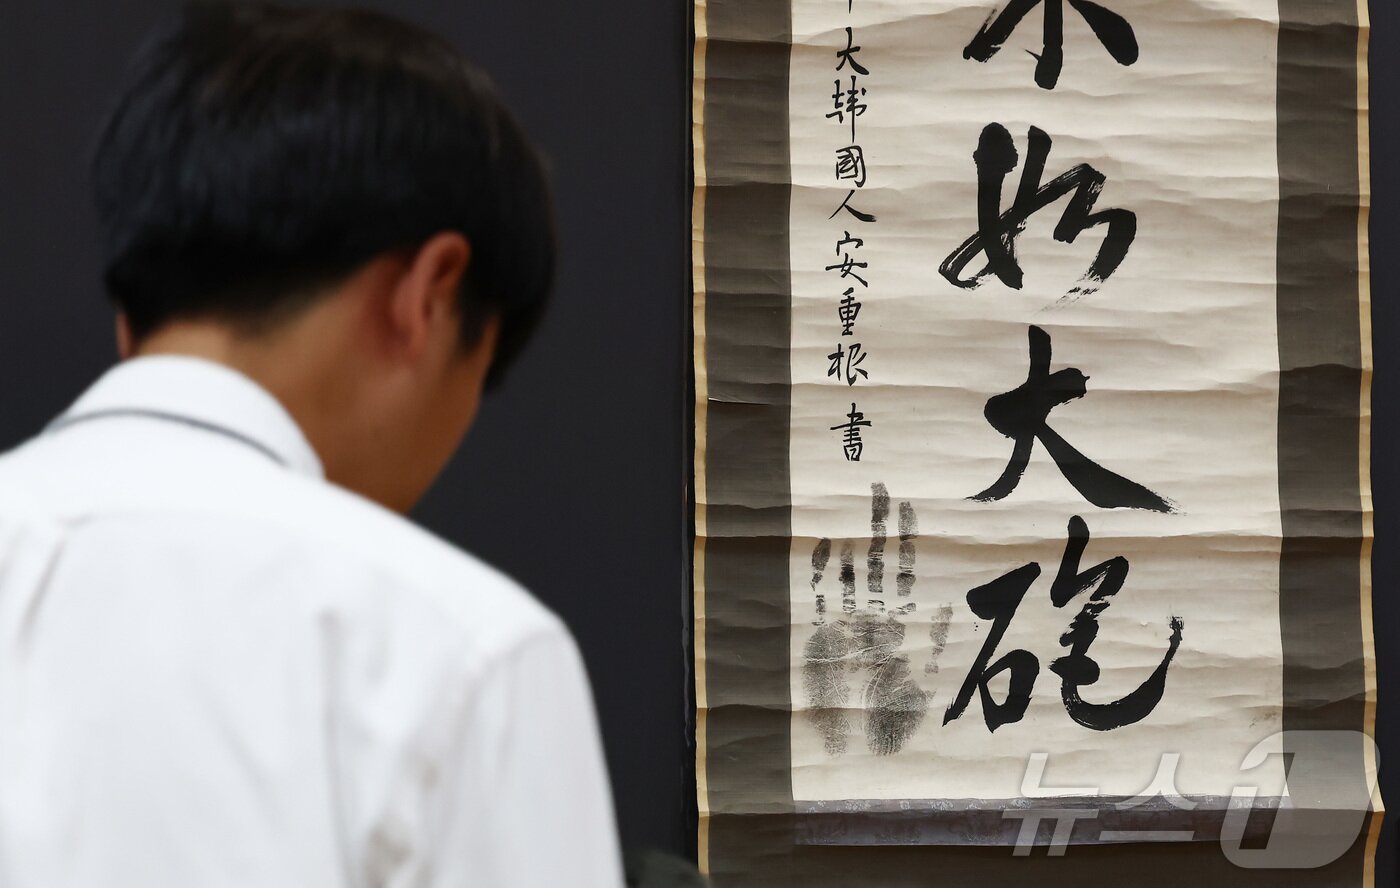 不如大砲
大韓國人安重根書
뉴스1